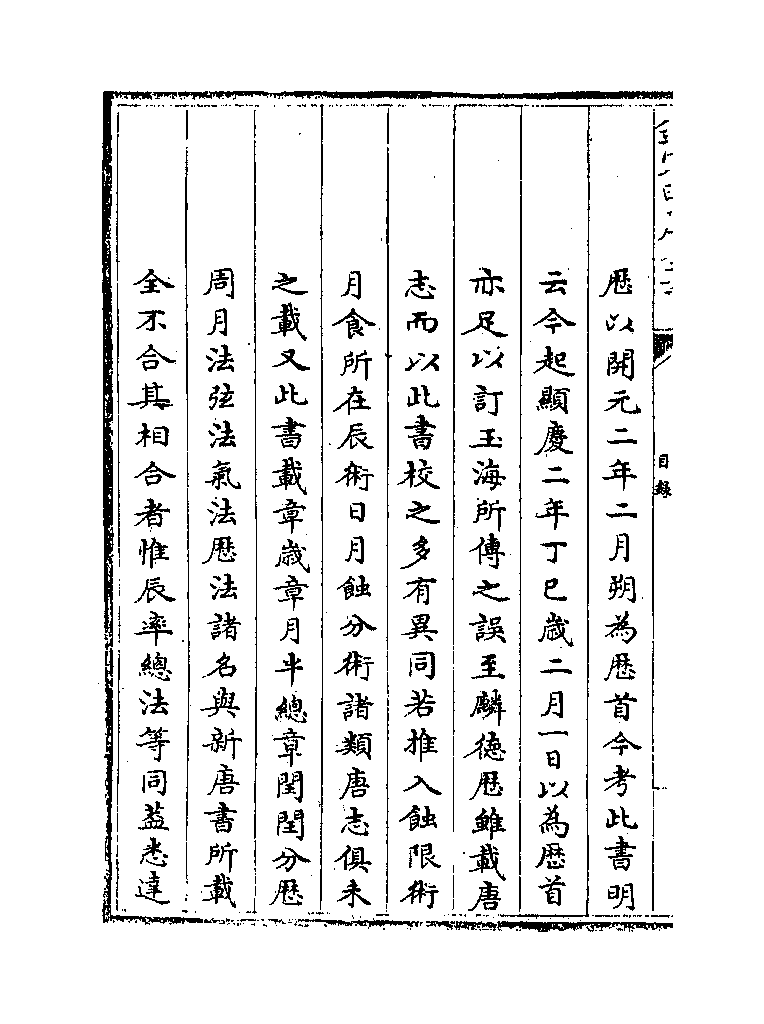 歴以開元二年二月朔為歴首今考此書明
云今起顯慶二年丁巳歲二月一日以為歴首
亦足以訂玉海所傳之誤至麟徳歴雖載唐
志而以此書校之多有異同若推入蝕限術
月食所在辰術日月蝕分術諸類唐志俱未
之載又此書載章歲章月半總章閏閏分歴
周月法弦法氣法歴法諸名與新唐書所載
全不合其相合者惟辰率總法等同葢悉達
目録